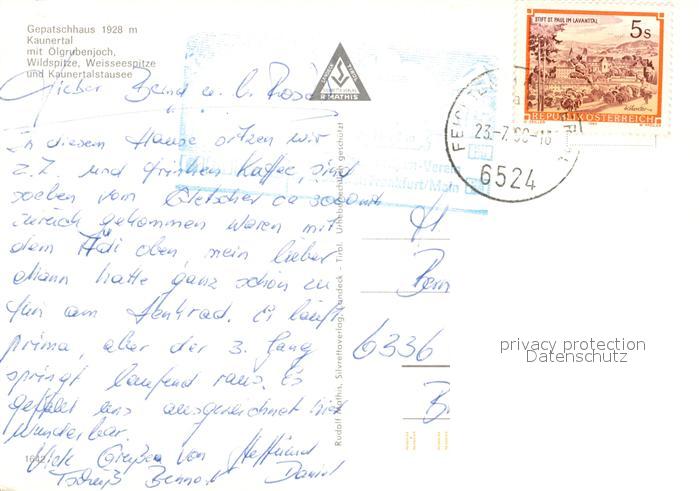 Gepatschhaus 1928 m
Kaunertal
mit Ölgrubenjoch,
Wildspitze, Weisseespitze
und Kaunertalstausee
Lieber Bernd u. l. Rosi
In diesem Hause sitzen wir
z.Z. und trinken Kaffee, sind
soeben vom Gletscher ca 3000 mtr
zurück gekommen waren mit
dem Adi oben, mein lieber
Mann hatte ganz schön zu
tun am Lenkrad. Er läuft
prima, aber der 3. Gang
springt laufend raus. Es
gefällt uns ausgezeichnet hier
wunderbar.
Viele Grüßen von
Tschüß Daniel
1642
R MATHIS
Rudolf Mathis, Silvrettaverlag, Landeck - Tirol. Urheberrechtlich geschützt
Frankfurt/Main
STIFT ST. PAUL IM LAVANTTAL
5 S
REPUBLIK ÖSTERREICH
23.-7. 6524
H
Bern
6336
B
privacy protection
Datenschutz